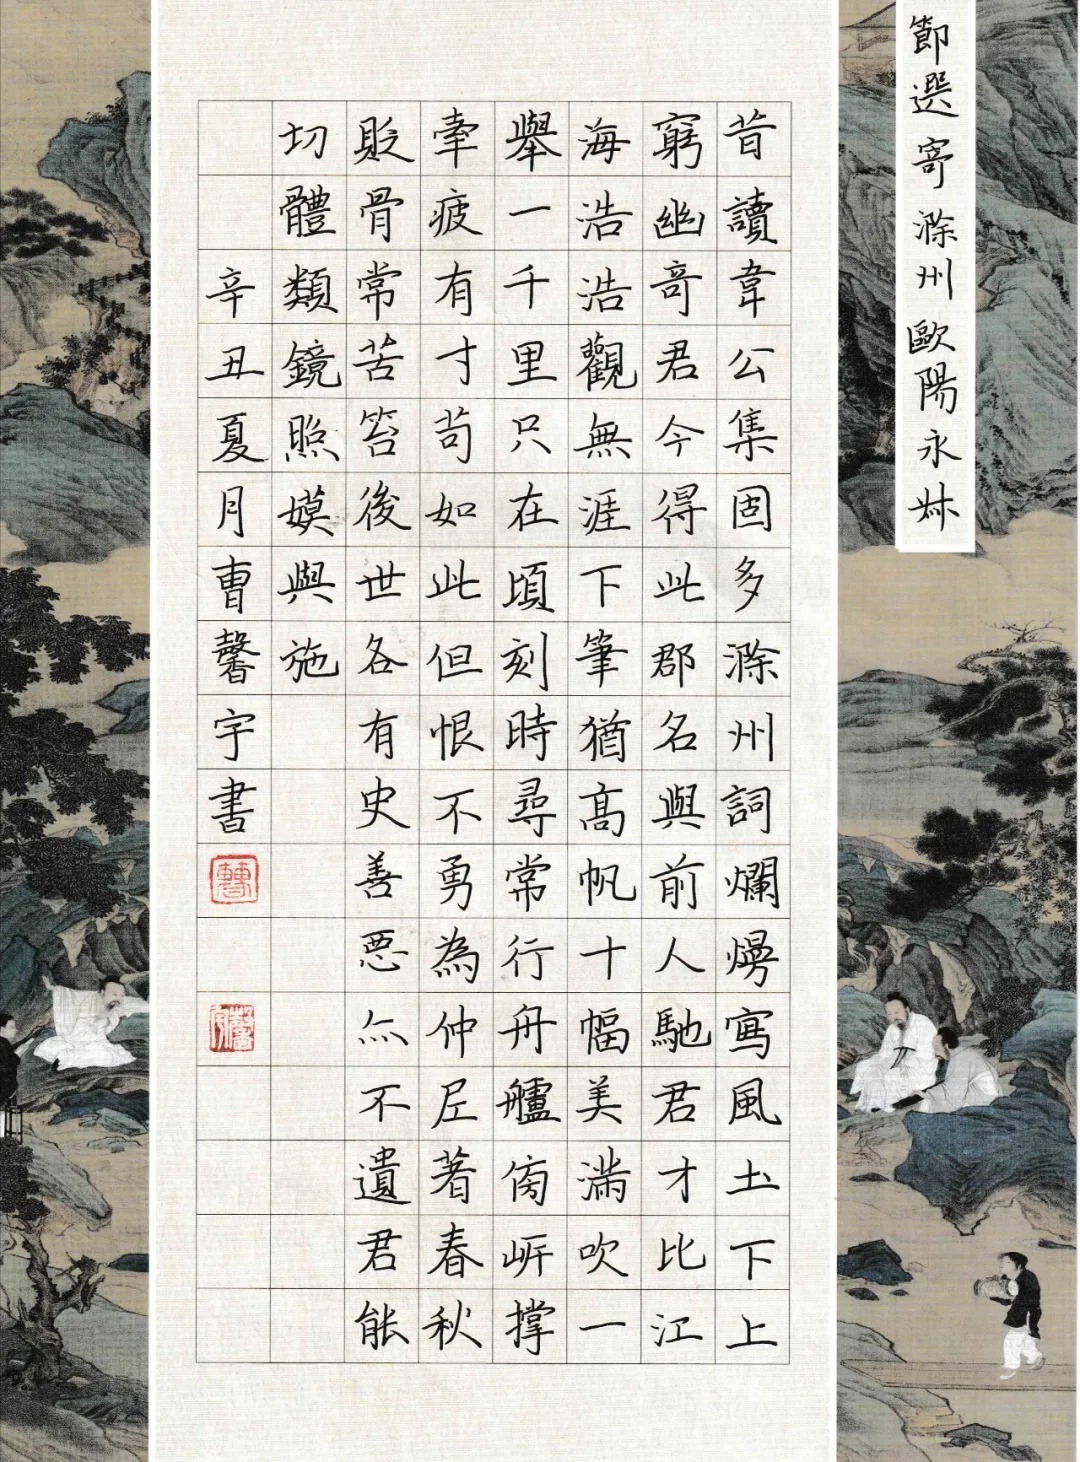 節選寄滁州歐陽永叔
昔讀韋公集固多滁州詞爛熳寫風土下上
窮幽奇君今得此郡名與前人馳君才比江
海浩浩觀無涯下筆猶高帆十幅美滿吹一
舉一千里只在頃刻時尋常行舟艫傍岍撐
牽疲有寸苟如此但恨不勇為仲尼著春秋
貶骨常苦笞後世各有史善惡亦不遺君能
切體類鏡照嫫與施
辛丑夏月曹馨宇書